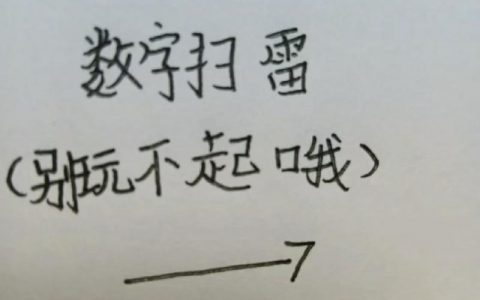 数字扫雷
(别玩不起哦)